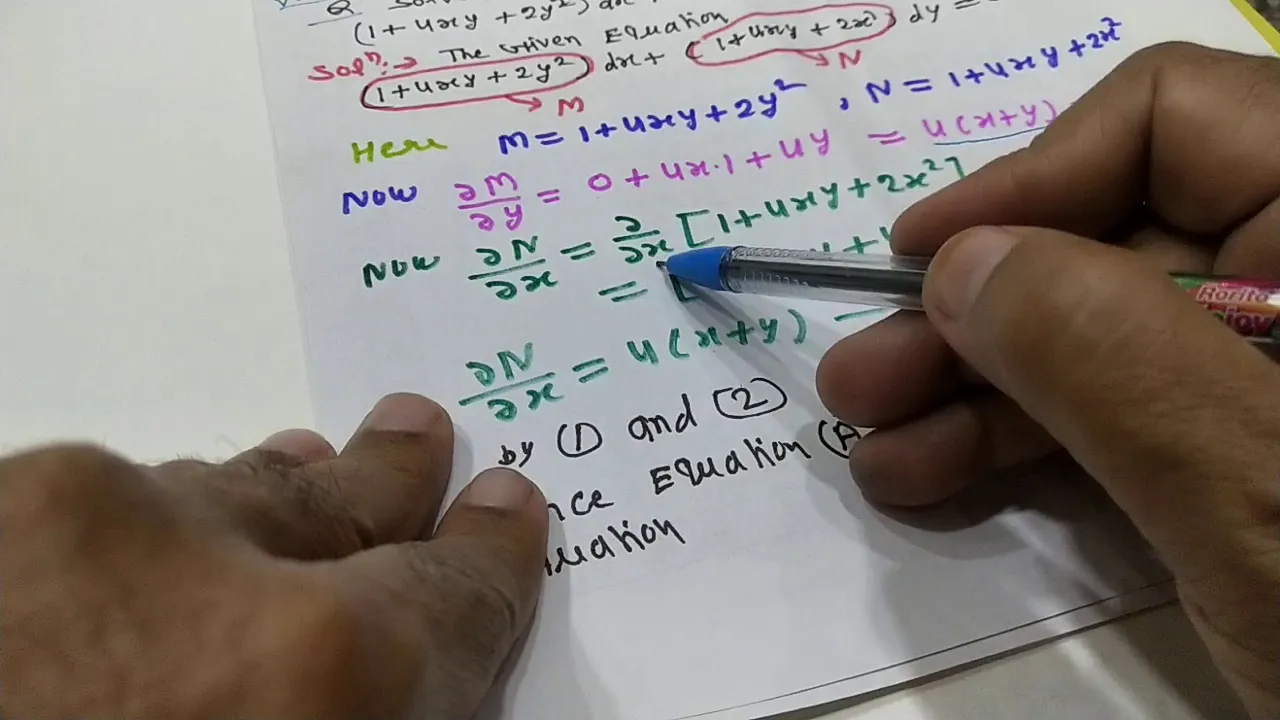 Q
(1+4xy+2y²) dx
Solⁿ:→ The Given Equation
(1+4xy+2y²) dx + (1+4xy+2x²) dy =
→ M → N
Here M = 1+4xy+2y² , N = 1+4xy+2x²
Now ∂M/∂y = 0+4x·1+4y = 4(x+y)
Now ∂N/∂x = ∂/∂x [1+4xy+2x²]
= [
∂N/∂x = 4(x+y)
by ① and ②
Equation (A
Rorito